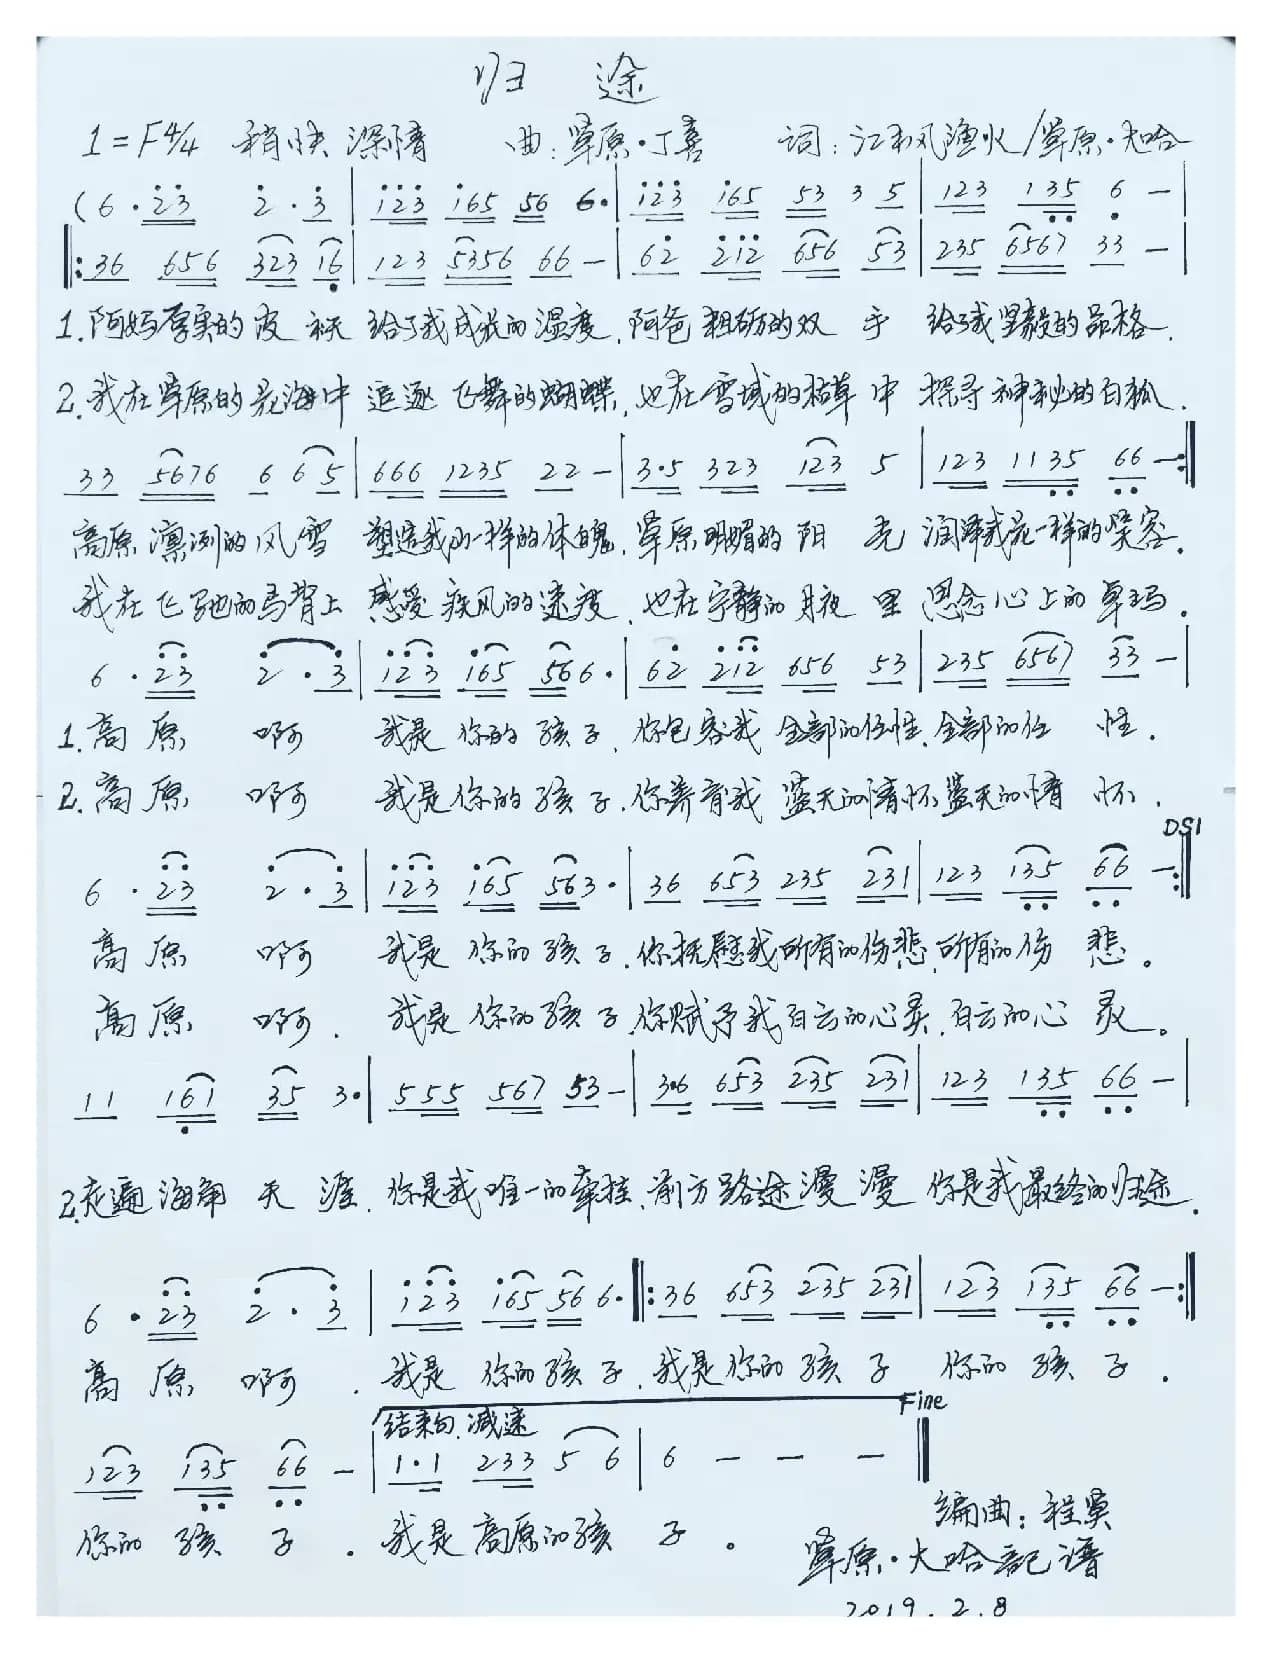 归途
1=F4/4 稍快 深情 曲:草原·丁喜 词:江和风渔火/草原·大哈
(6·23 2·3|123 165 56 6·|123 165 53 3 5|123 135 6—|
‖:36 656 323 16|123 5356 66—|62 212 656 53|235 6567 33—|
1.阿妈厚实的皮袄 给了我成长的温度,阿爸粗砺的双手 给了我坚毅的品格.
2.我在草原的花海中 追逐飞舞的蝴蝶,也在雪域的枯草中 探寻神秘的白狐.
33 5676 6 6 5|666 1235 22—|3·5 323 123 5|123 1135 66—:‖
高原凛冽的风雪 塑造我山一样的体魄.草原明媚的阳光 润泽我花一样的笑容.
我在飞驰的马背上 感受疾风的速度,也在宁静的月夜里 思念心上的卓玛.
6·23 2·3|123 165 56 6·|62 212 656 53|235 6567 33—|
1.高原啊 我是你的孩子,你包容我全部的任性,全部的任性.
2.高原啊 我是你的孩子.你养育我蓝天的情怀蓝天的情怀.
DS1
6·23 2·3|123 165 563·|36 653 235 231|123 135 66—:‖
高原啊 我是你的孩子.你抚慰我所有的伤悲,所有的伤悲。
高原啊.我是你的孩子,你赋予我白云的心灵,白云的心灵。
11 161 35 3·|555 567 53—|3·6 653 235 231|123 135 66—|
2.走遍海角天涯.你是我唯一的牵挂.前方路途漫漫 你是我最终的归途.
6·23 2·3|123 165 56 6·‖:36 653 235 231|123 135 66—:‖
高原啊.我是你的孩子.我是你的孩子 你的孩子.
结束句.减速 Fine
123 135 66—|1·1 233 5 6|6———‖
你的孩子.我是高原的孩子。
编曲:程昊
草原·大哈記谱
2019.2.8